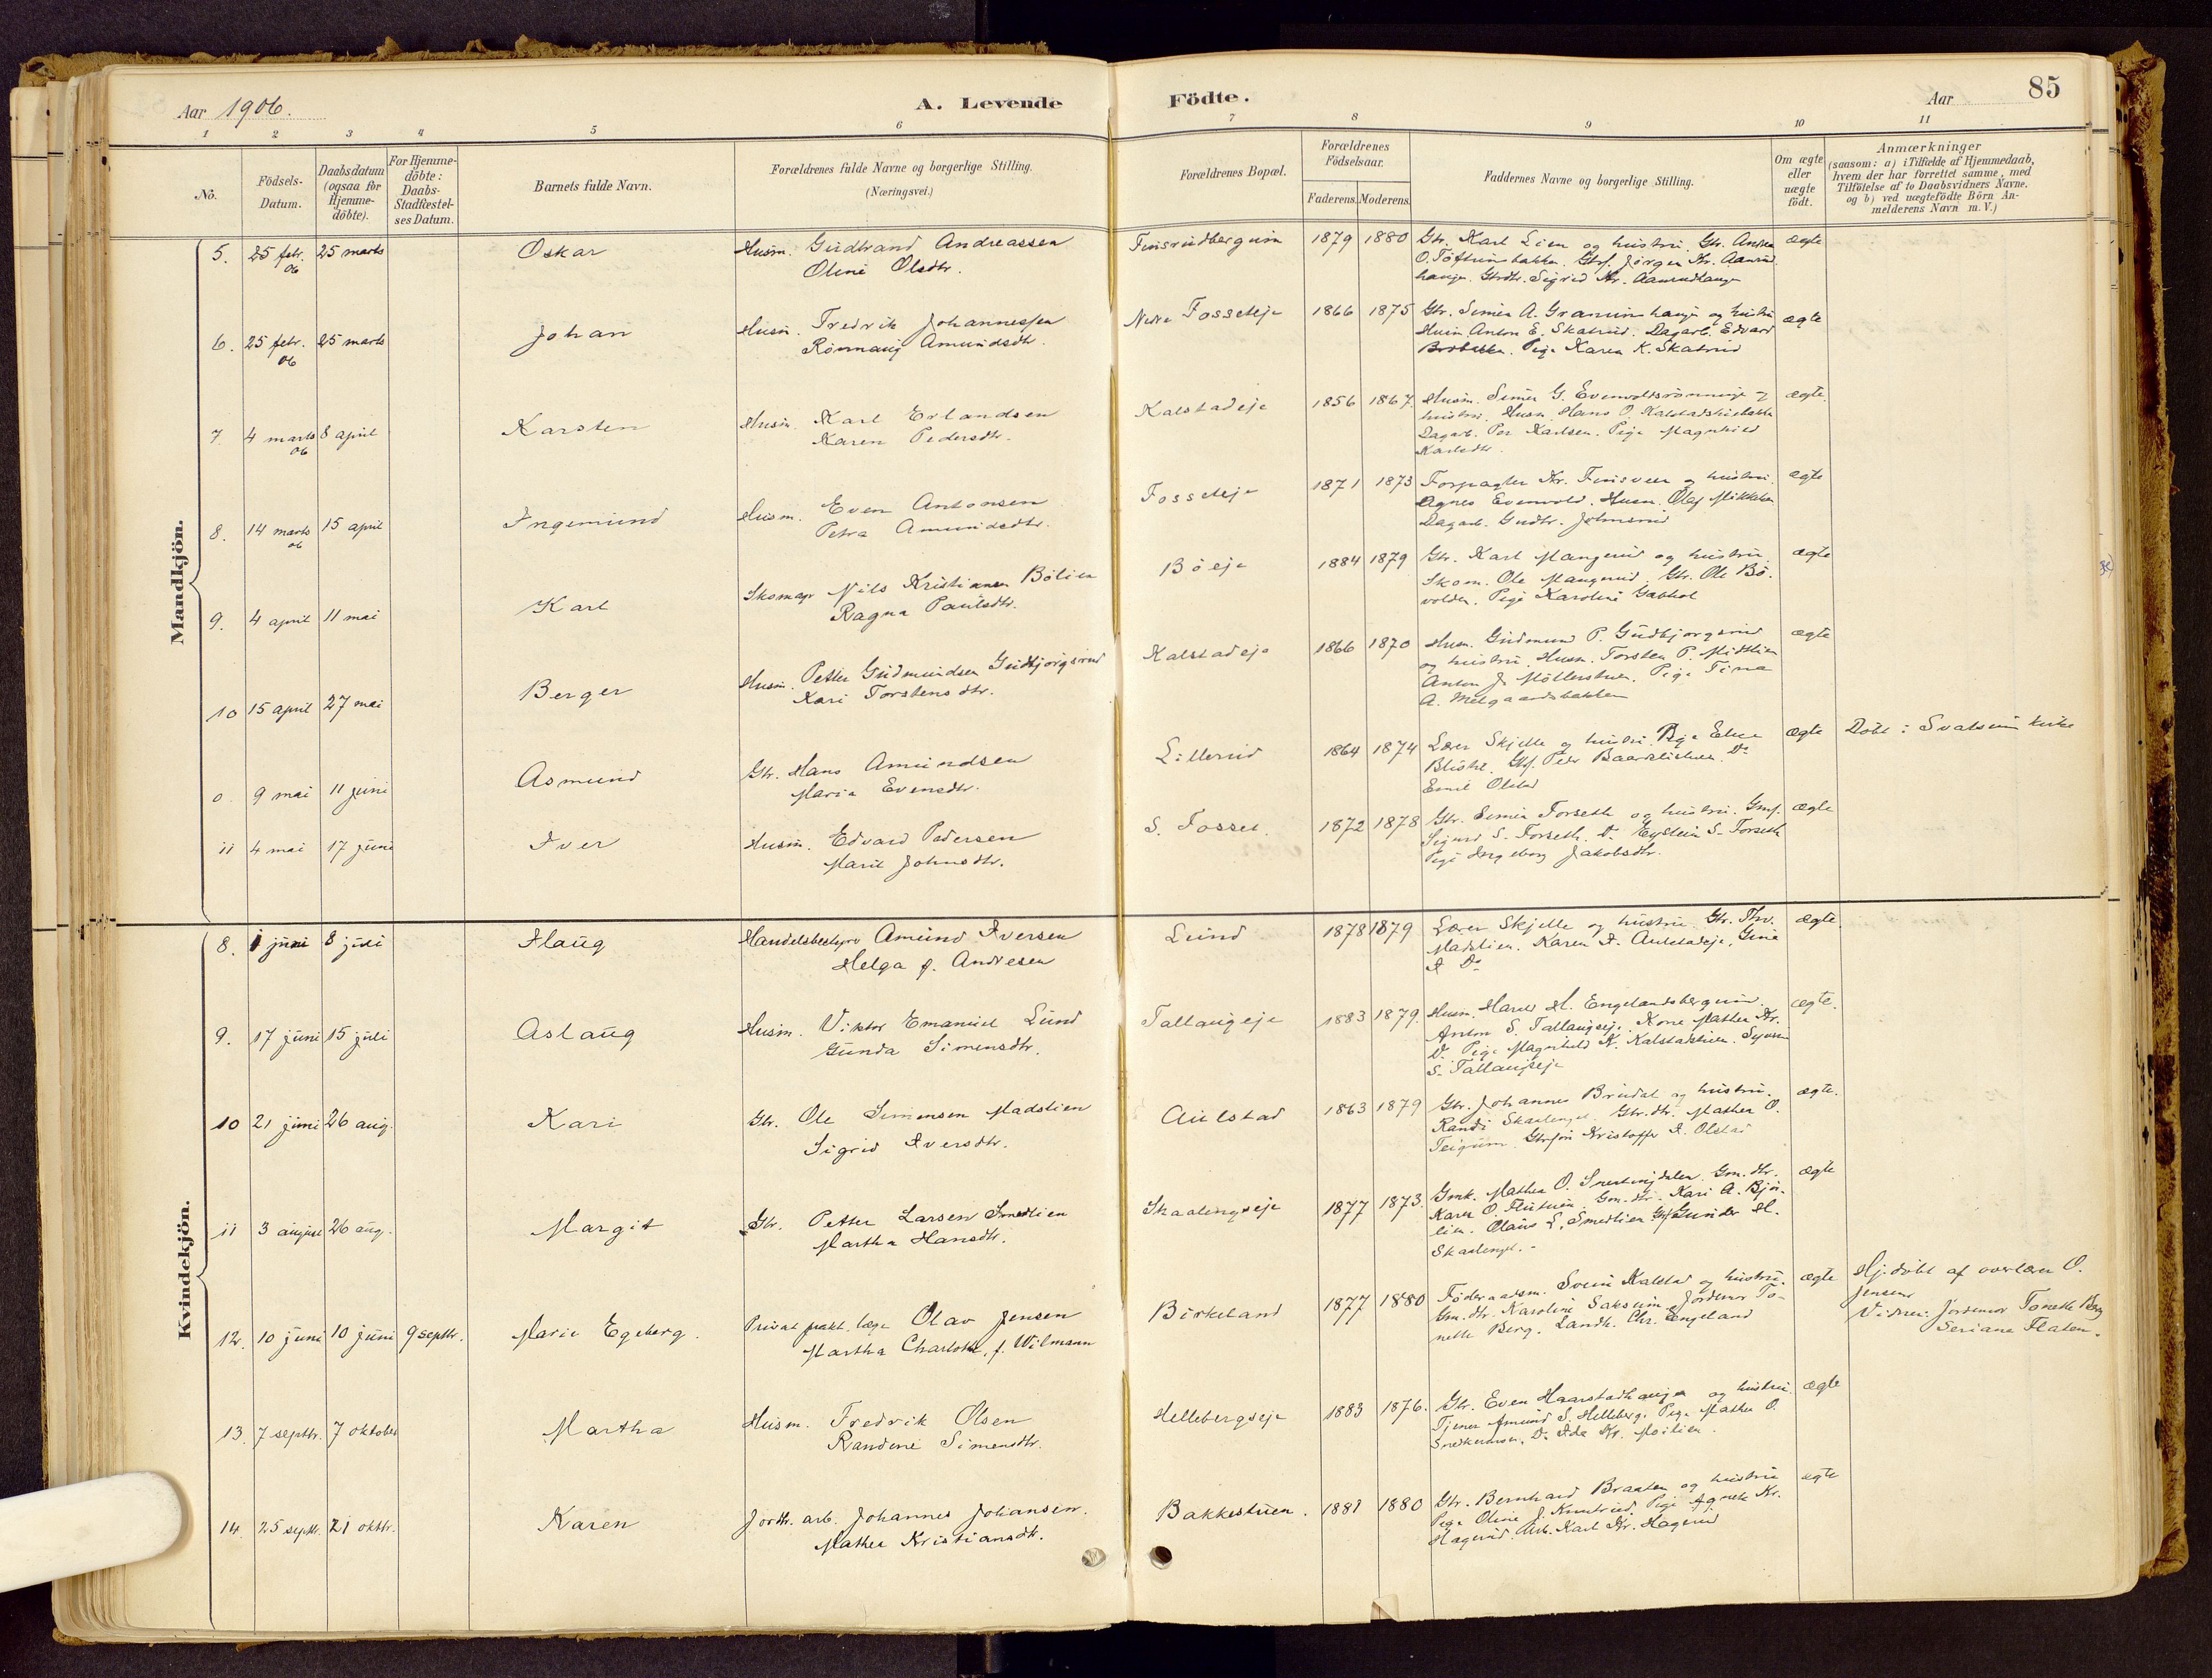 Aar 1906.
A. Levende Födte.
Aar
85
1 2 3 4 5 6 7 8 9 10 11
No.
Födsels-
Datum.
Daabsdatum
(ogsaa for
Hjemme-
döbte).
For Hjemme-
döbte:
Daabs-
Stadfæstel-
ses Datum.
Barnets fulde Navn.
Forældrenes fulde Navne og borgerlige Stilling.
(Næringsvei.)
Forældrenes Bopæl.
Forældrenes
Födselsaar.
Faderens. Moderens.
Faddernes Navne og borgerlige Stilling.
Om ægte
eller
uægte
födt.
Anmærkninger
(saasom: a) i Tilfælde af Hjemmedaab,
hvem der har forrettet samme, med
Tilföielse af to Daabsvidners Navne.
og b) ved uægtefödte Börn An-
melderens Navn m. V.)
Mandkjön.
5. 25 febr. 06 25 marts Oskar
Husm. Gudbrand Andreassen
Oline Olsdtr.
Finsrudbergum 1879 1880
Gbr. Karl Lien og hustru. Gbr. Andrea
O. Töftumsbakke. Gbrs. Jörgen Kr. Aanrud
haugen. Gbrdtr. Sigrid Kr. Aanrudhaug
ægte
6. 25 febr. 06 25 marts Johan
Husm. Fredrik Johannessen
Rönnaug Amundsdtr.
Nedre Fosseteje 1866 1875
Gbr. Simen A. Granum haugen og hustru
Husm Anton E. Skatrud. Dagarb. Edvard
Pige Karen K. Skatrud
ægte
7. 4 marts 06 8 april Karsten
Husm. Karl Erlandsen
Karen Pedersdtr.
Kalstadeje 1856 1867.
Husm. Simen G. Evenvoldsrönninge og
hustru. Husm Hans O. Kalstadstuebakke
Dagarb. Per Karlsen. Pige Magnhild
Karlsdtr.
ægte.
8. 14 marts 06 15 april Ingemund
Husm. Even Antonsen
Petra Amundsdtr.
Fosseteje 1871 1873
Forpagter Kr. Finsveen og hustru.
Agnes Evenvold. Husm. Olaf Mikkelsen
Dagarb. Gudbr. Johnsrud
ægte
9. 4 april 11 mai Karl
Skomagr Nils Kristiansen Bölien
Ragna Paulsdtr.
Böeje 1884 1879
Gbr. Karl Mangerud og hustru
Skom. Ole Mangerud. Gbr. Ole Bö-
volden. Pige Karoline Gabhol
ægte
10 15 april 27 mai Berger
Husm. Petter Gudmundsen Gudbjorgsrud
Kari Torstensdtr.
Kalstadeje 1866 1870
Husm. Gudmund P. Gudbjorgsrud
og hustru. Husm. Torsten P. Midtlien
Anton J. Möllerstuen. Pige Tina
A. Melgaardsbakken
ægte
0. 9 mai 11 juni Asmund
Gbr. Hans Amundsen
Maria Evensdtr.
Lillerud 1864 1874
Lærer Skjelle og hustru. Pige Elise
Do
Emil Olstad
ægte
Döbt i Svatsum kirke
11 4 mai 17 juni Iver
Husm. Edvard Pedersen
Marit Johnsdtr.
S. Fosset. 1872 1878
Gbr. Simen Forseth og hustru. Gms.
Sigurd S. Forseth. Do Eystein S. Forseth
Pige Ingeborg Jakobsdtr.
ægte
Kvindekjön.
8. 1 juni 8 juli Aslaug
Handelsbestyrer Amund Iversen
Helga f. Andresen
Lund 1878 1879
Lærer Skjelle og hustru. Gbr. Thv.
Madslien. Karen A. Aulstadeje, Gina
A Do
ægte.
9. 17 juni 15 juli Aslaug
Husm. Viktor Emanuel Lund
Gunda Simensdtr.
Tallaugeje 1883 1879.
Husm. Hans H. Engelandsbergum.
Anton S. Tallaugseje. Kone Mathea Kr.
Do Pige Magnhild K. Kalstadstuen. Syver
S. Tallaugseje
ægte.
10 21 juni 26 aug. Kari
Gbr. Ole Simensen Madslien
Sigrid Iversdtr.
Aulstad 1863 1879
Gbr. Johannes Bredal og hustru.
Randi Skaalenget. Gbr.dtr. Mathea O.
Teigum. Gbrsön Kristoffer A. Olstad
ægte.
11 3 august 26 aug. Margit
Gbr. Petter Larsen Smedlien
Martha Hansdtr.
Skaalengseje 1877 1873.
Gmk. Mathea O. Snertingdalen. Gm. dtr.
Karen O. Flutuen. Gm. dtr. Kari A. Björ-
lien. Olaus L. Smedlien Gbrs Gunder H.
Skaalenget.
ægte
12. 10 juni 10 juni 9 septbr. Marie Egeberg.
Privat prakt. læge Olav Jensen
Martha Charlotte, f. Wilmann
Birkeland 1877 1880
Föderaadsm. Svein Kalstad og hustru.
Gm. dtr. Karoline Saksum. Jordemor To-
nette Berg. Landh. Chr. Engeland
ægte
Hj. döbt af overlærer O.
Jensen
Vidner: Jordemor Tonette Berg
Seriane Flaten.
13. 7 septbr. 7 oktober Martha
Husm. Fredrik Olsen
Randine Simensdtr.
Hellebergseje 1883 1876.
Gbr. Even Haarstadhaugen og hustru.
Tjener Amund S. Helleberg. Pige Mathea O.
Snedkermoen. Do Ida Kr. Moilien.
ægte
14. 25 septbr. 21 oktbr. Karen
Jordbr. arb. Johannes Johansen.
Mathea Kristiansdtr.
Bakkestuen. 1881 1880
Gbr. Bernhard Braaten og hustru
Pige Oline J. Knutrud. Pige Agnete Kr.
Hagerud. Arb. Karl Kr. Hagerud
ægte